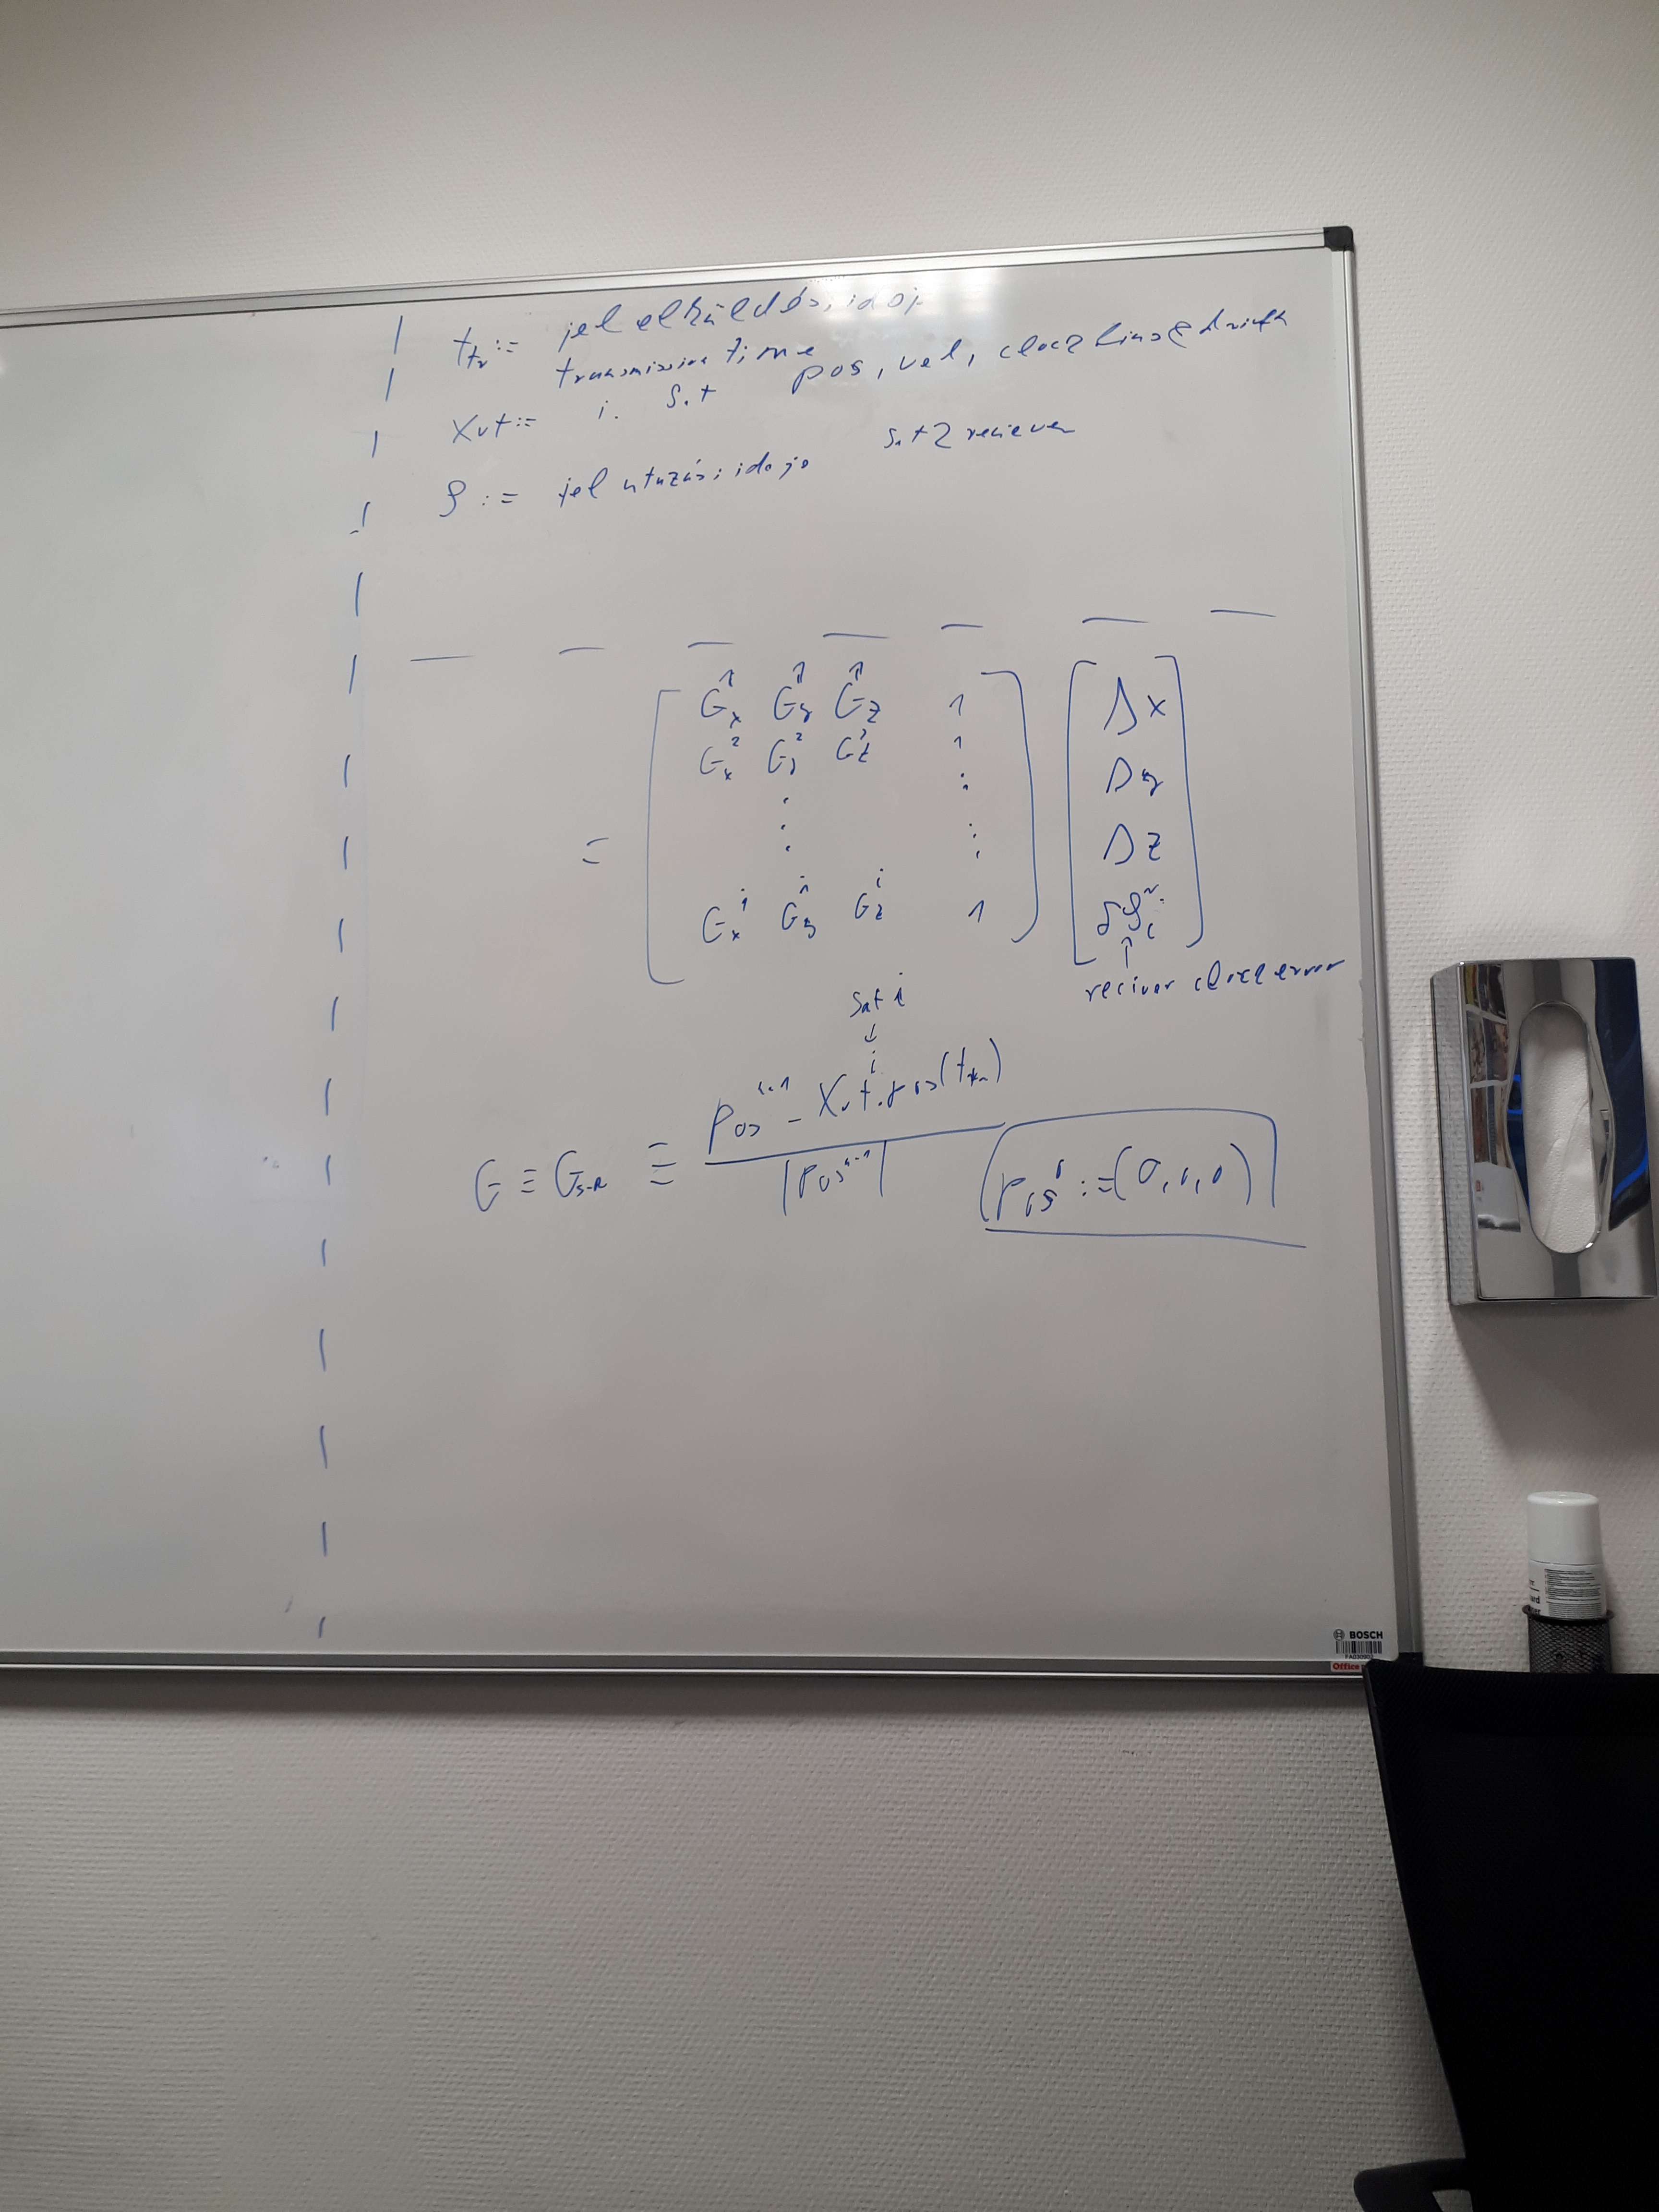 t_tr := jel elküldési idej
transmission time
Xvt := i. Sat pos, vel, clock bias & drift
ρ := jel utazási ideje sat 2 reciever
G_x^1 G_y^1 G_z^1 1 Δx
G_x^2 G_y^2 G_z^2 1 Δy
= Δz
G_x^i G_y^i G_z^i 1
reciver clock error
Sat i
↓
G ≡ G_{S-R} ≡ pos^{n-1} - Xvt^i.pos(t_tr) / |pos^{n-1}| pos^0 := (0,0,0)
BOSCH
Office